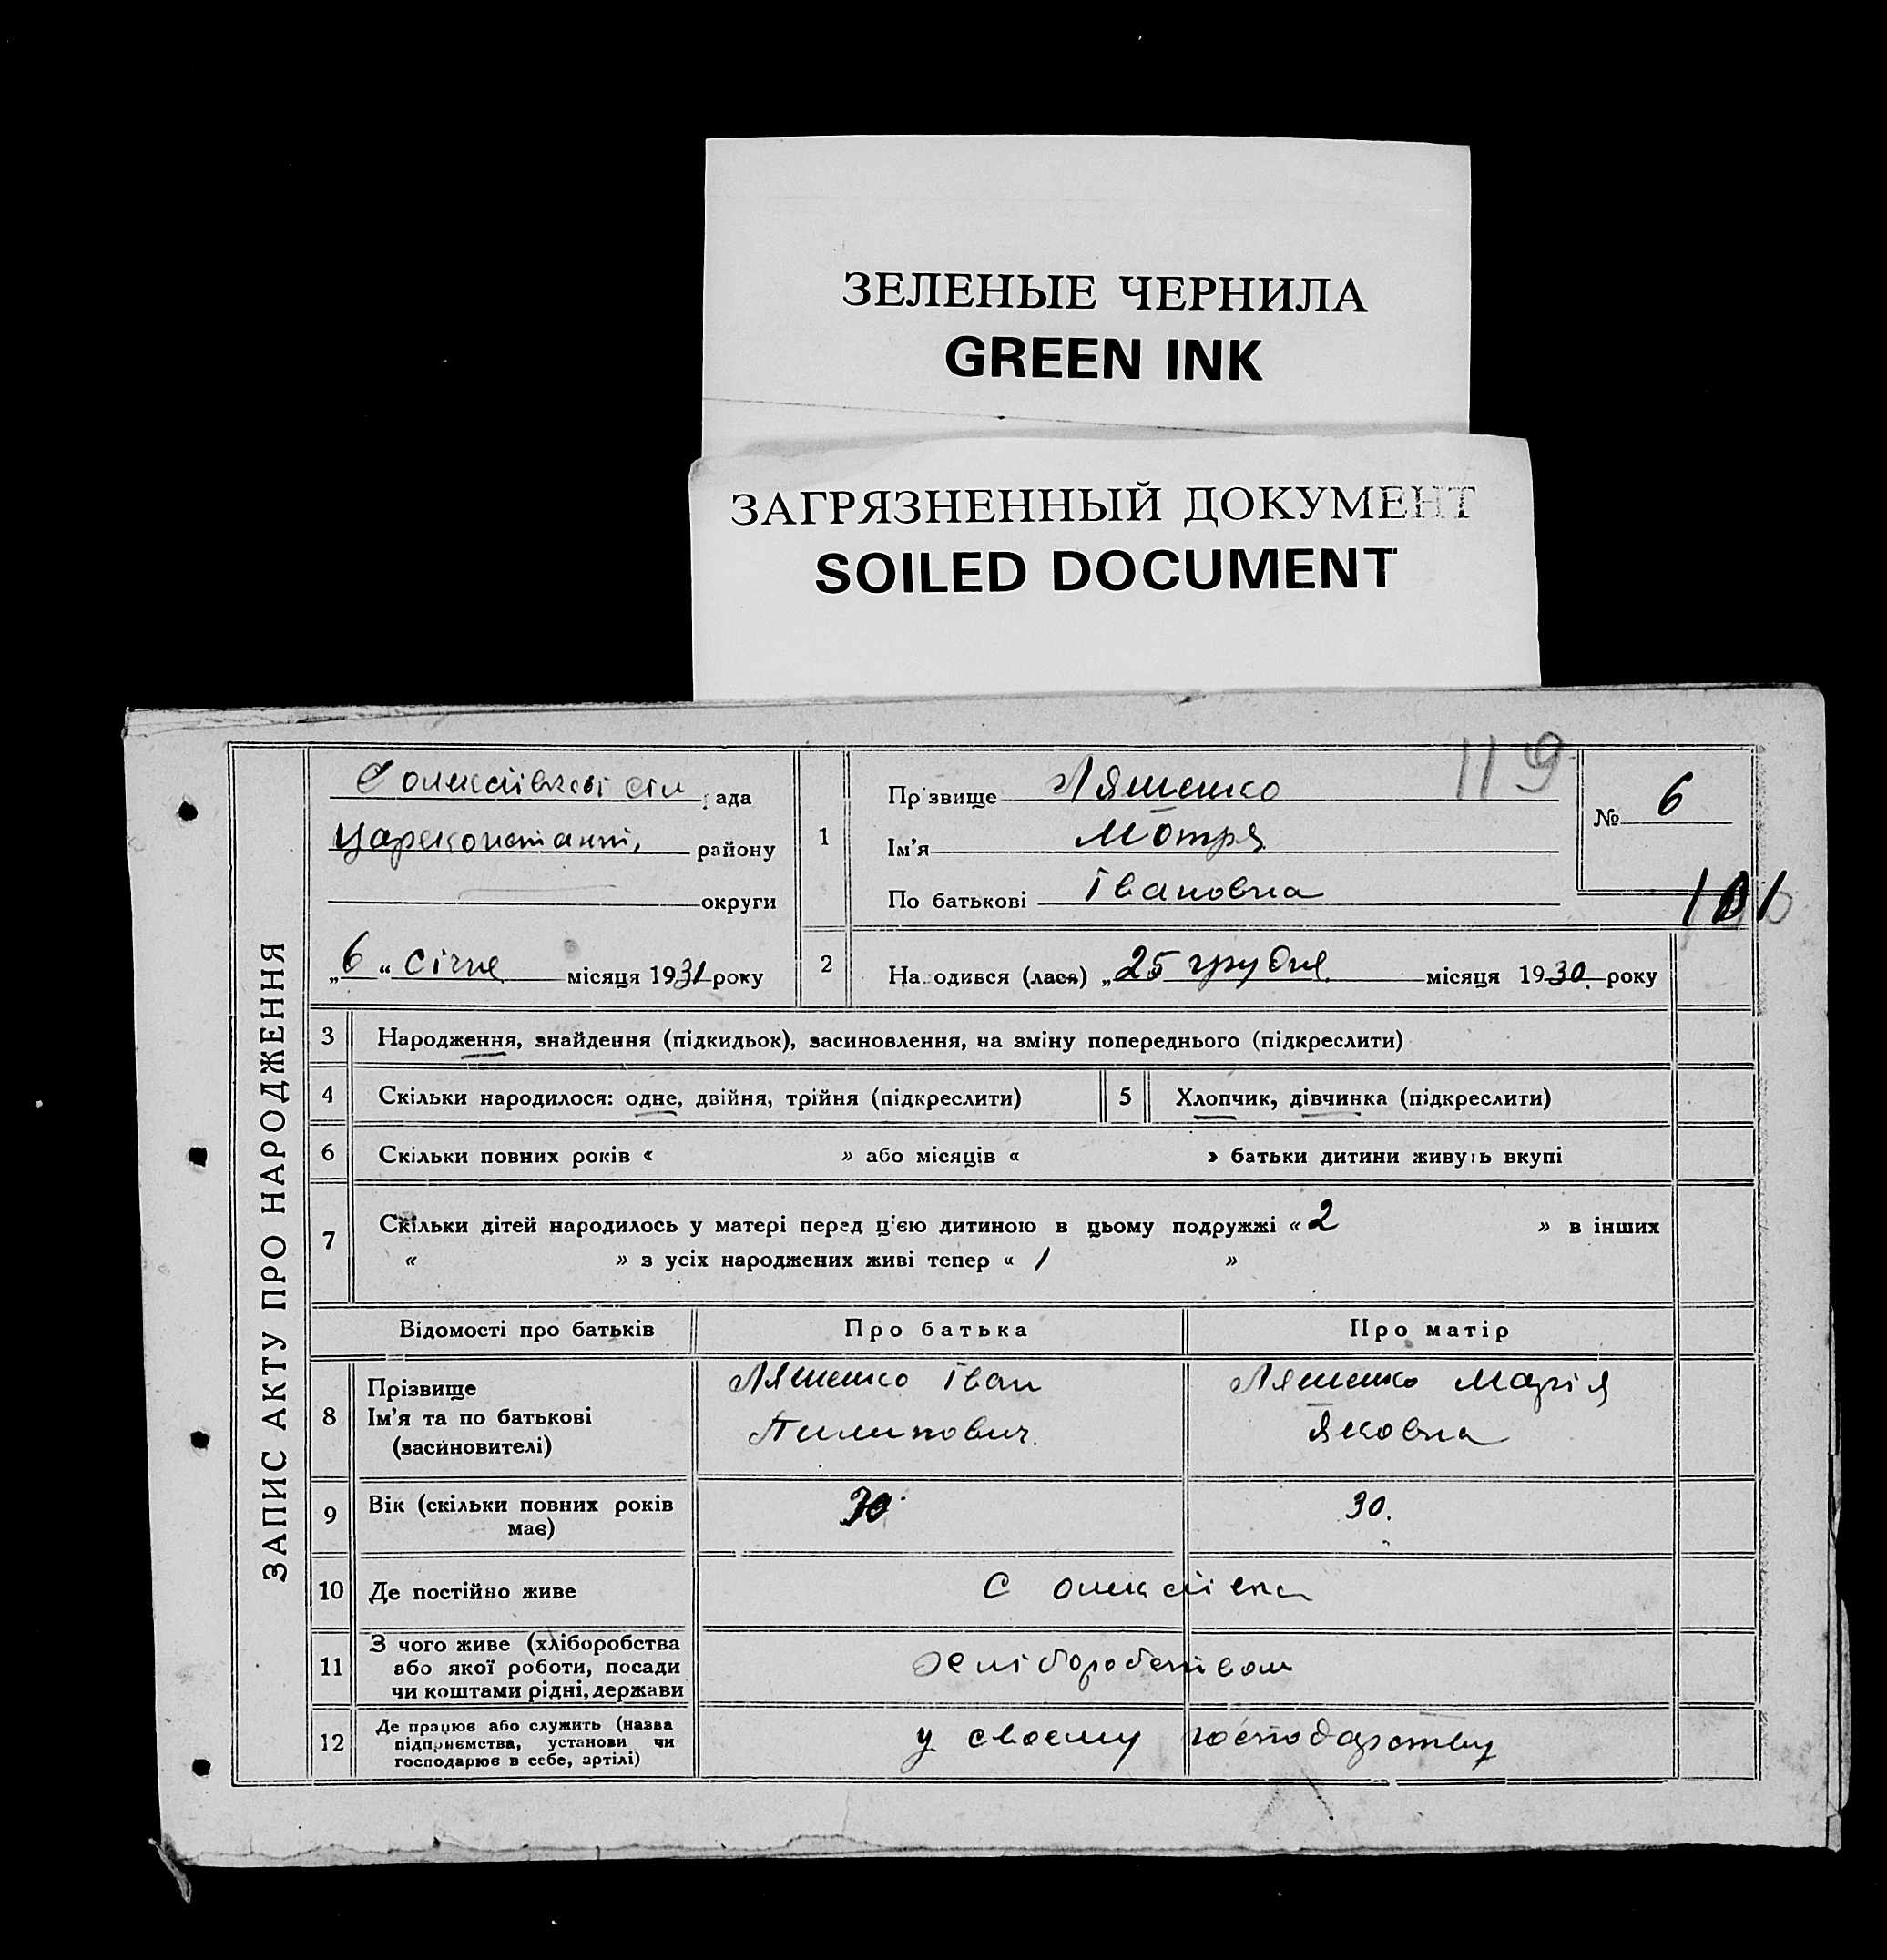 ЗЕЛЕНЫЕ ЧЕРНИЛА
GREEN INK
ЗАГРЯЗНЕННЫЙ ДОКУМЕНТ
SOILED DOCUMENT
119
ЗАПИС АКТУ ПРО НАРОДЖЕННЯ
сіл рада
Цареконстант. району
округи
„6“ січня місяця 1931 року
1
Прізвище Ляшенко
Ім'я Мотря
По батькові Івановна
№ 6
101
2
Народився (лася) „25 грудня місяця 1930 року
3 Народження, знайдення (підкидьок), засиновлення, на зміну попереднього (підкреслити)
4 Скільки народилося: одне, двійня, трійня (підкреслити)
5 Хлопчик, дівчинка (підкреслити)
6 Скільки повних років « » або місяців « » батьки дитини живуть вкупі
7 Скільки дітей народилось у матері перед ц'єю дитиною в цьому подружжі «2 » в інших
« » з усіх народжених живі тепер « 1 »
Відомості про батьків Про батька Про матір
8 Прізвище
Ім'я та по батькові
(засиновителі)
Ляшенко Іван
Пилипович.
Ляшенко Марія
Яковна
9 Вік (скільки повних років
має)
30.
30.
10 Де постійно живе
С Олексіївка
11 З чого живе (хліборобства
або якої роботи, посади
чи коштами рідні, держави
Хліборобством
12 Де працює або служить (назва
підприємства, установи чи
господарює в себе, артілі)
у своєму господарству